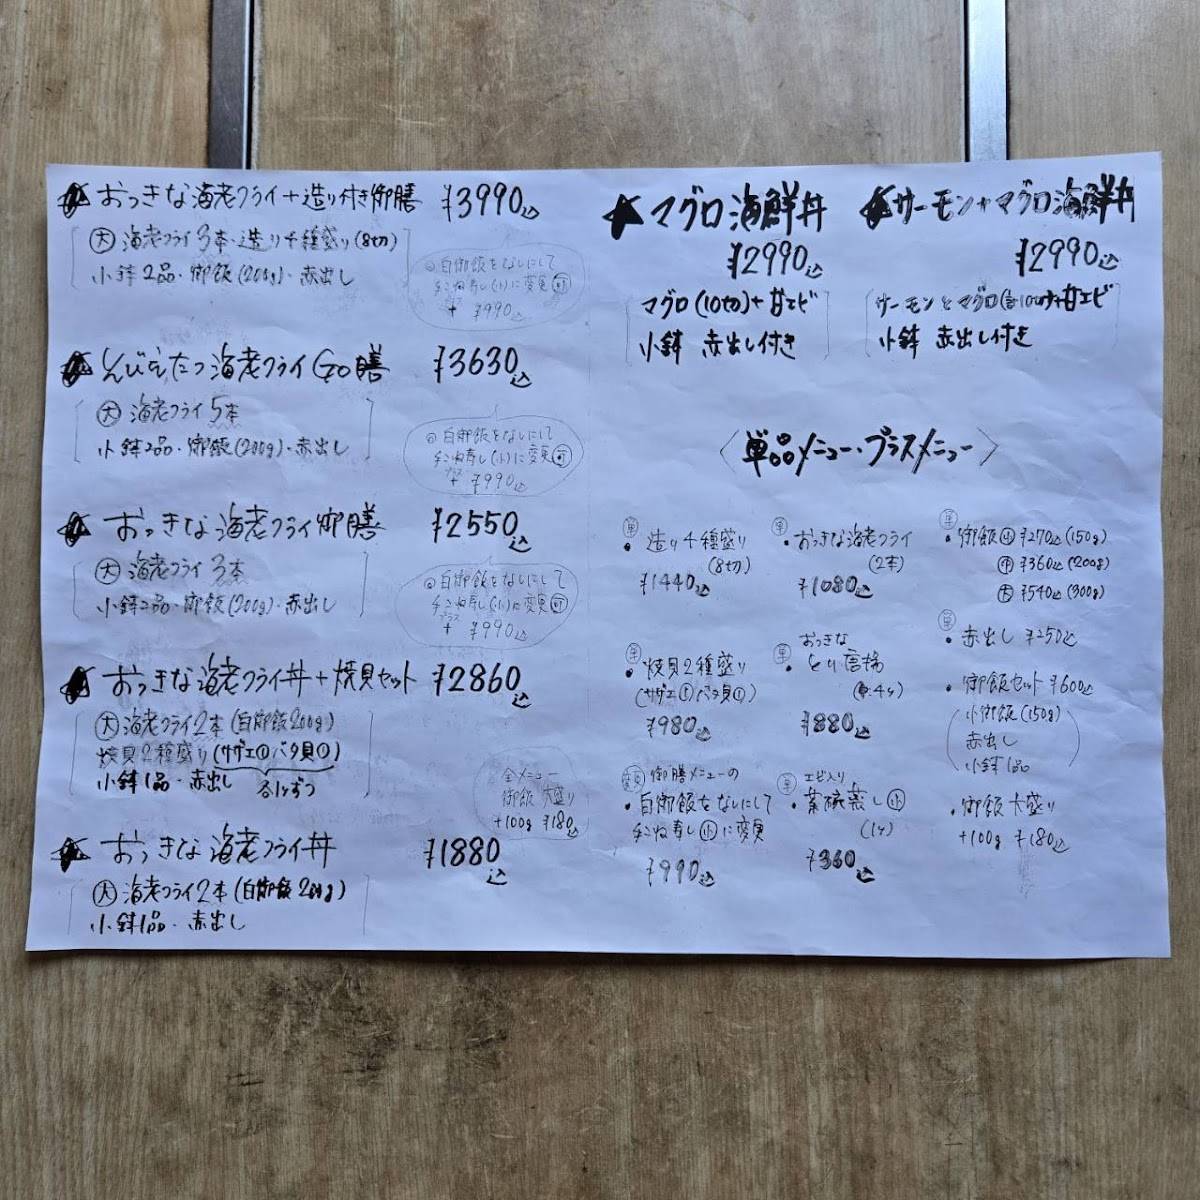 ★おっきな海老フライ+造り付き御膳 ¥3990込
大 海老フライ3本・造り4種盛り(8切)
小鉢2品・御飯(200g)・赤出し
◎白御飯をなしにして
ちらし寿し(小)に変更可
+ ¥990込
海老フライ GO膳 ¥3630込
大 海老フライ5本
小鉢2品・御飯(200g)・赤出し
◎白御飯をなしにして
寿し(小)に変更可
プラス
+ ¥990込
★おっきな海老フライ御膳 ¥2550込
大 海老フライ3本
小鉢2品・御飯(200g)・赤出し
◎白御飯をなしにして
寿し(小)に変更可
プラス
+ ¥990込
★おっきな海老フライ丼+焼貝セット ¥2860込
大 海老フライ2本(白御飯200g)
焼貝2種盛り(サザエ①バタ貝①)
小鉢1品・赤出し 各1ヶずつ
全メニュー
御飯 大盛り
+100g ¥180込
★おっきな海老フライ丼 ¥1880込
大 海老フライ2本(白御飯200g)
小鉢1品・赤出し
★マグロ海鮮丼
¥2990込
マグロ(10切)+甘エビ
小鉢 赤出し付き
★サーモン+マグロ海鮮丼
¥2990込
サーモンとマグロ(合10切)+甘エビ
小鉢 赤出し付き
〈単品メニュー・プラスメニュー〉
単
・造り4種盛り
(8切)
¥1440込
単
・おっきな海老フライ
(2本)
¥1080込
単
・御飯 小 ¥270込(150g)
中 ¥360込(200g)
大 ¥540込(300g)
単
・焼貝2種盛り
(サザエ①バタ貝①)
¥980込
単
おっきな
・とり唐揚
¥880込
単
・赤出し ¥250込
・御飯セット ¥600込
小御飯(150g)
赤出し
小鉢1品
変更 御膳メニューの
・白御飯をなしにして
寿し小に変更
¥990込
単 エビ入り
・茶碗蒸し小
(1ヶ)
¥360込
・御飯大盛り
+100g ¥180込